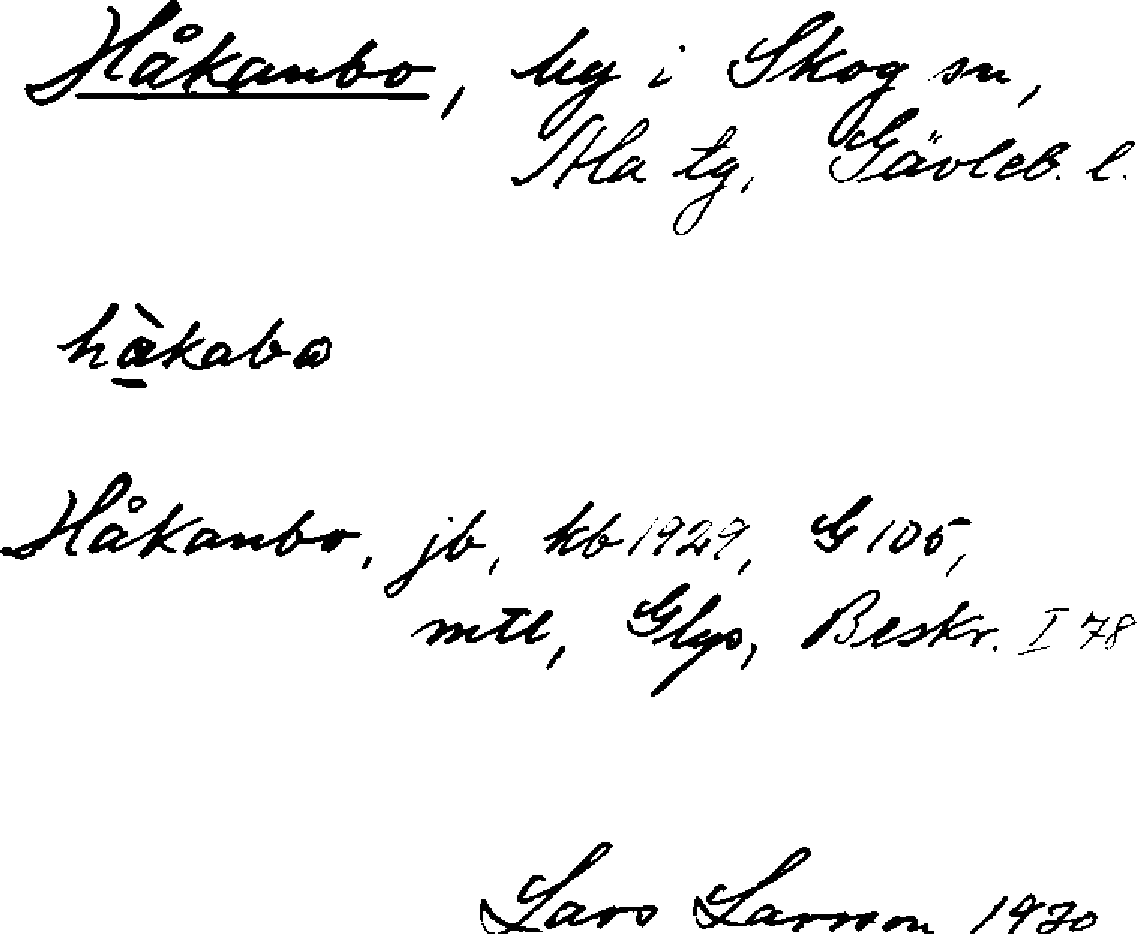 Håkanbo, by i Skog sn,
Ala tg, Gävleb. l.
hàkabω
Håkanbo, jb, kb 1929, G 105,
mtl, Glys, Beskr. I 78
Lars Larsson 1930